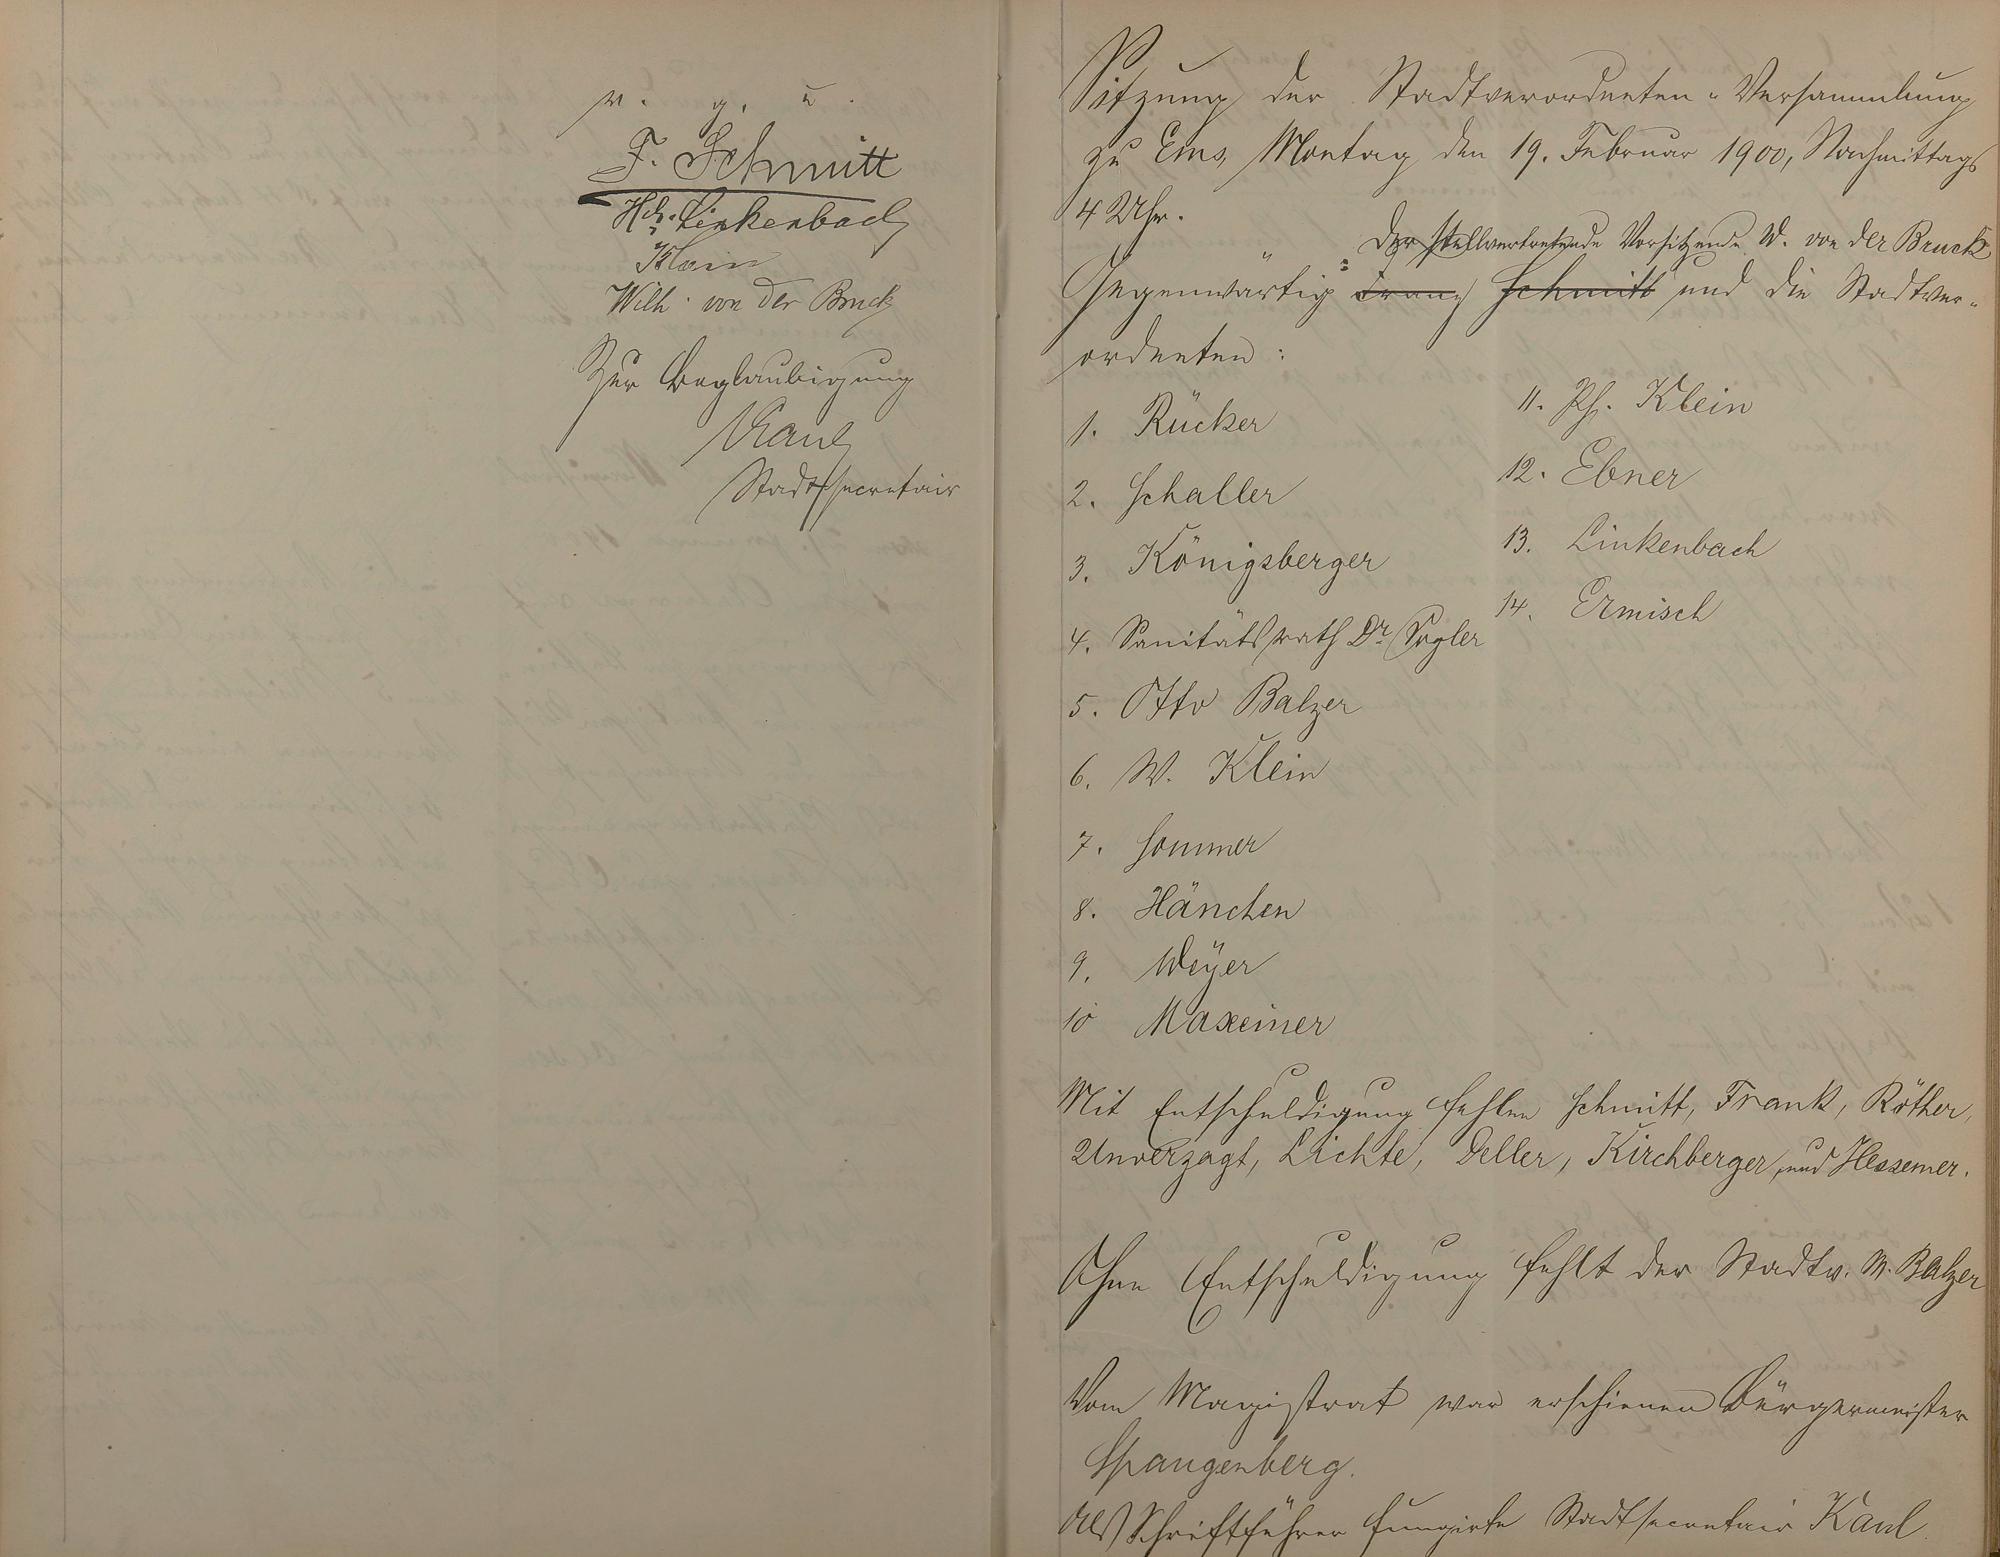 v. g. u.
F. Schmitt
Hch. Linkenbach
Klein
Wilh. von der Bruck
Zur Beglaubigung
Kaul
Stadtsecretair
Sitzung der Stadtverordneten-Versammlung
zu Ems, Montag den 19. Februar 1900, Nachmittags
4 Uhr.
Der stellvertretende Vorsitzende W. von der Bruck
Gegenwärtig: Franz Schmitt und die Stadtver-
ordneten:
1. Rücker
2. Schaller
3. Königsberger
4. Sanitätsrath Dr. Vogler
5. Otto Balzer
6. W. Klein
7. Sommer
8. Hänchen
9. Weÿer
10 Maxeiner
11. Ph. Klein
12. Ebner
13. Linkenbach
14. Ermisch
Mit Entschuldigung fehlen Schmitt, Frank, Röther,
Unverzagt, Lickte, Deller, Kirchberger, und Hessemer.
Ohne Entschuldigung fehlt der Stadtv. W. Balzer
Vom Magistrat war erschienen Bürgermeister
Spangenberg.
Als Schriftführer fungirte Stadtsecretair Kaul.